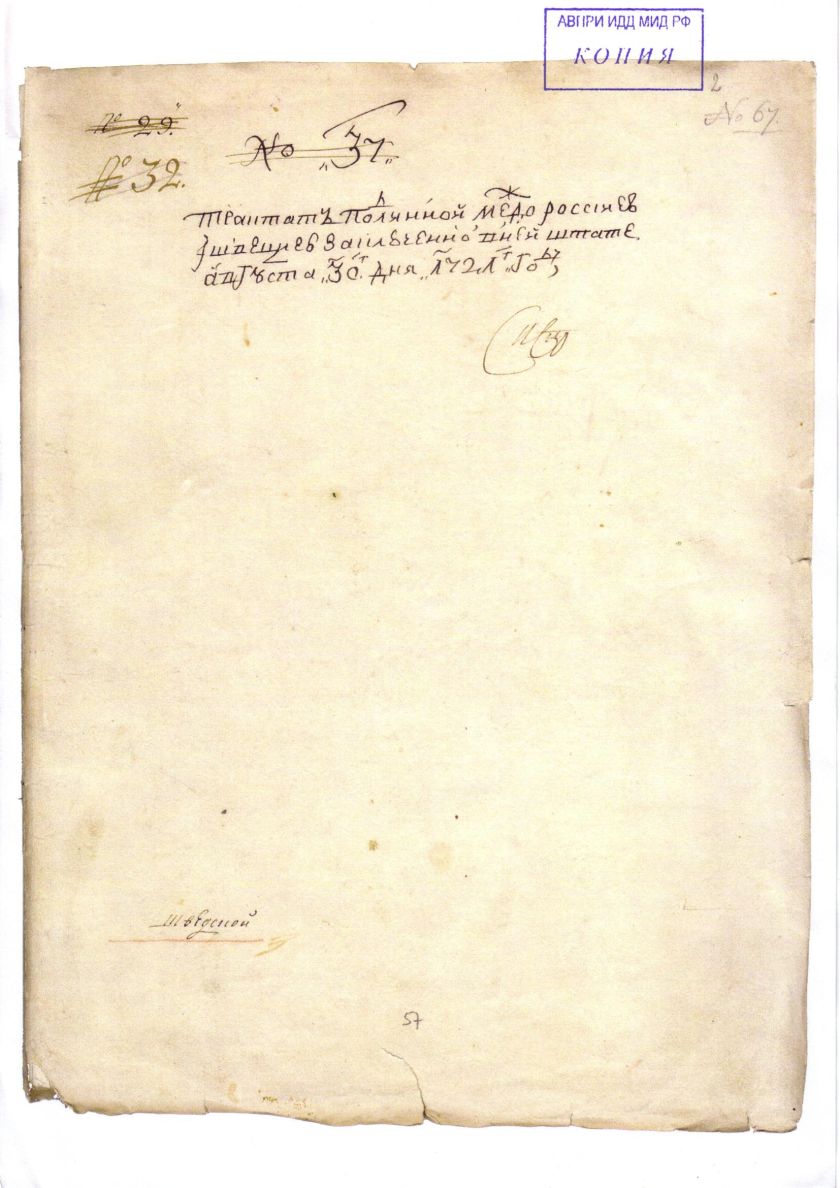 АВПРИ ИДД МИД РФ
КОПИЯ
2
№ 67
№ 29.
№ 32.
№ „37„
трактатъ полянной медо россиев
швецыев заключенно
августа „30. дня „1721„ го
шведской
57